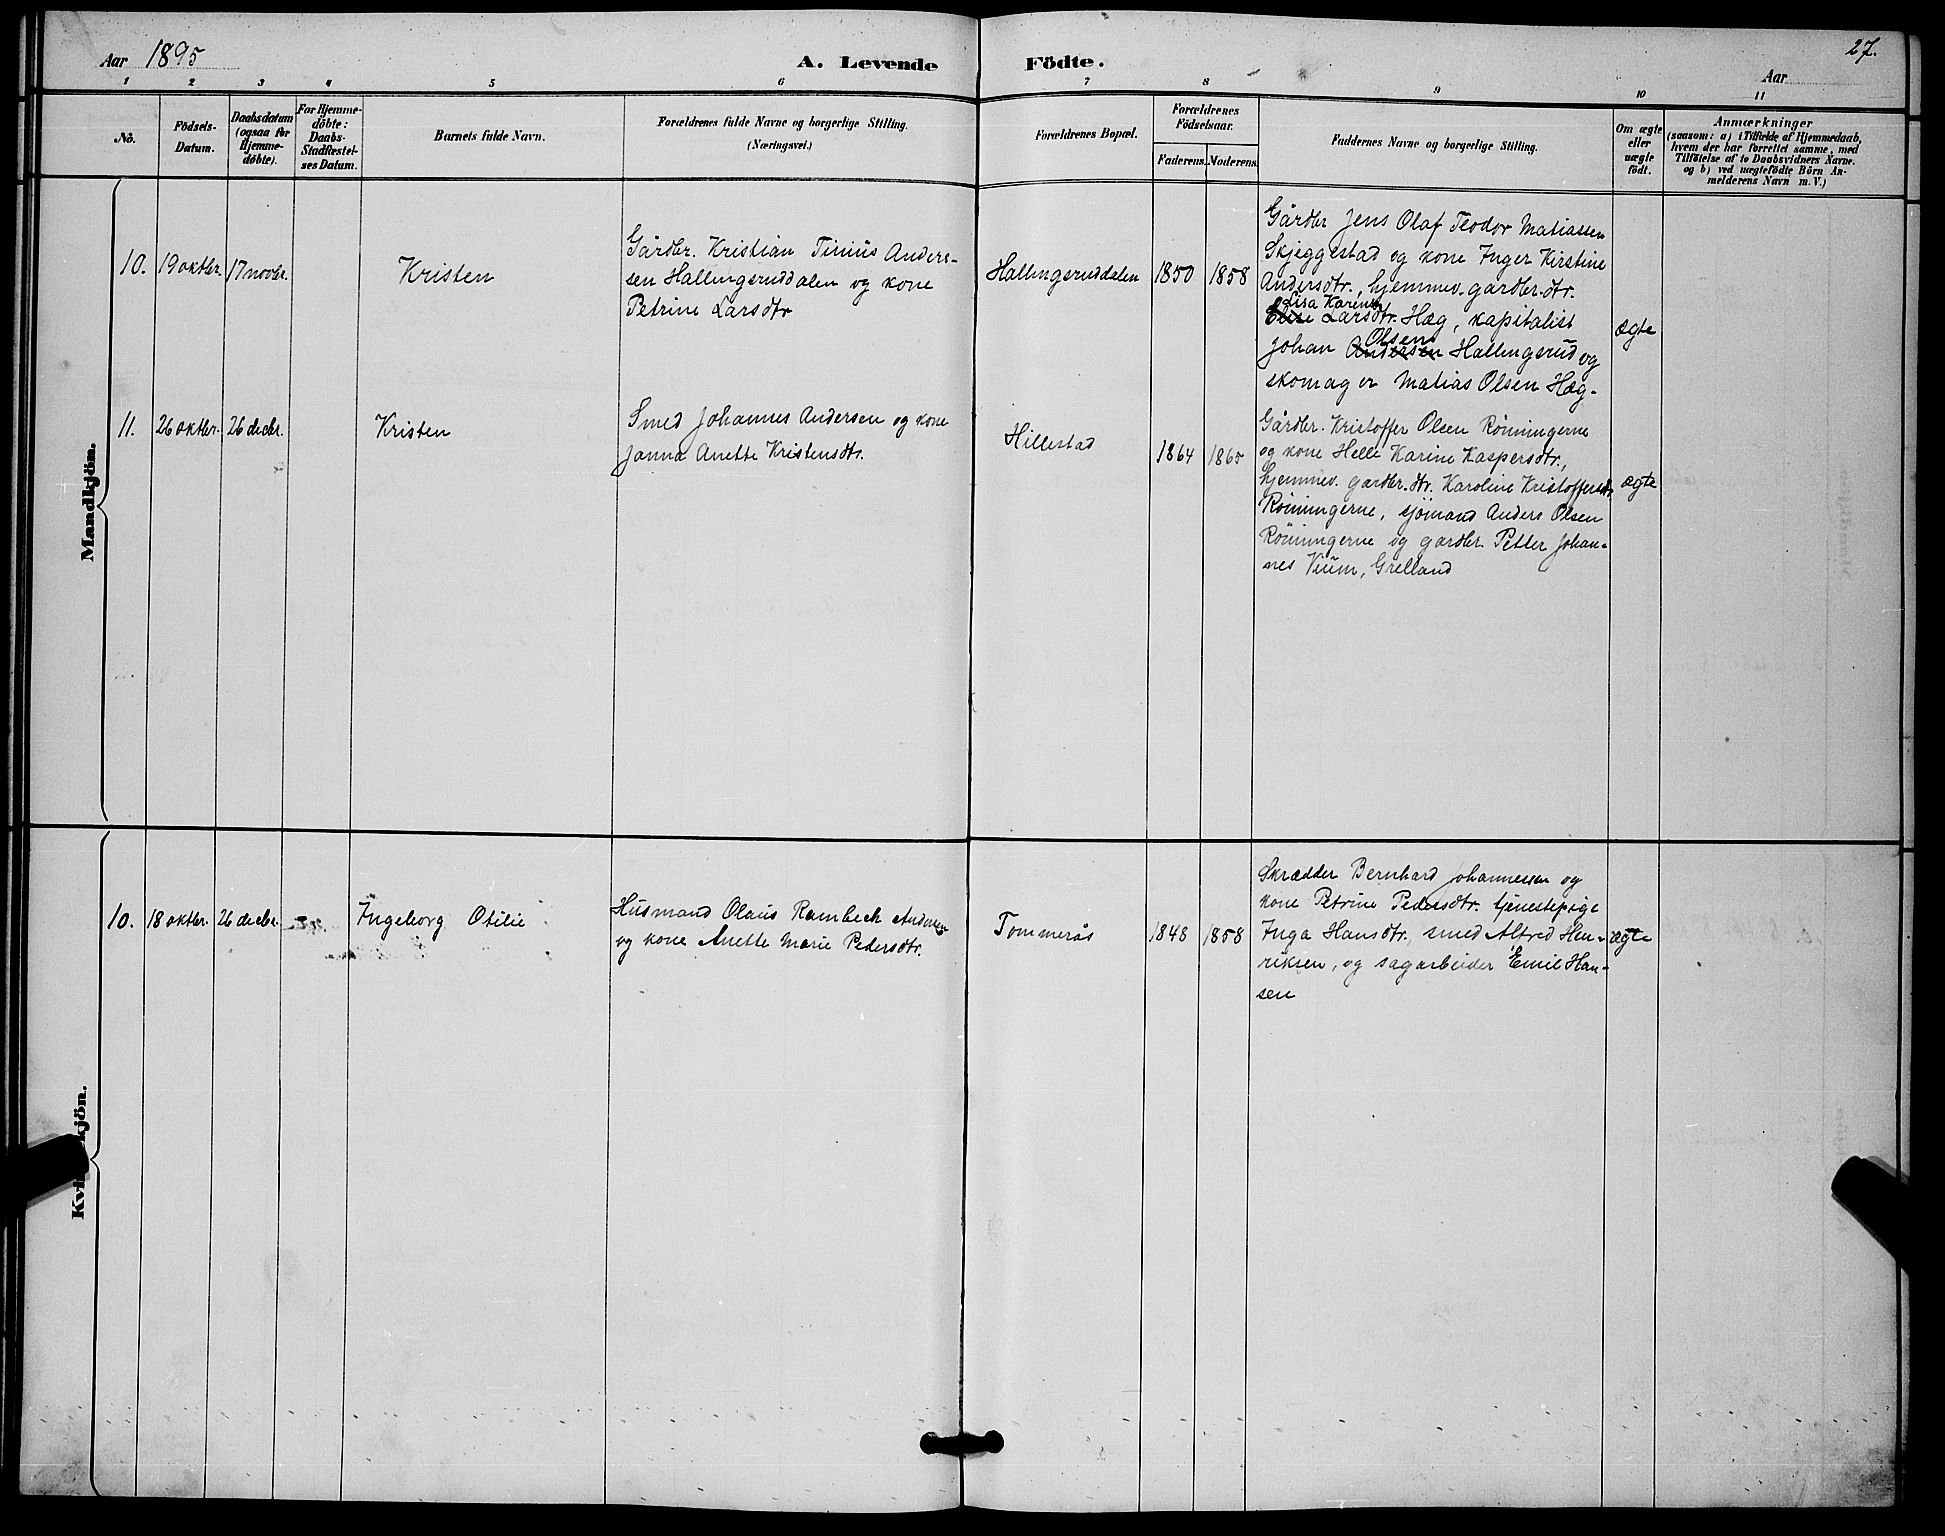 Aar 1895
A. Levende Födte.
27.
Aar
1 2 3 4 5 6 7 8 9 10 11
No.
Födsels-
Datum.
Daabsdatum
(ogsaa for
Hjemme-
döbte).
For Hjemme-
döbte:
Daabs-
Stadfæstel-
ses Datum.
Barnets fulde Navn.
Forældrenes fulde Navne og borgerlige Stilling.
(Næringsvei.)
Forældrenes Bopæl.
Forældrenes
Födselsaar.
Faderens. Moderens.
Faddernes Navne og borgerlige Stilling.
Om ægte
eller
uægte
født.
Anmærkninger
(saasom: a) i Tilfælde af Hjemmedaab,
hvem der har forrettet samme, med
Tilföielse af to Daabsvidners Navne.
og b) ved uægtefödte Börn An-
melderens Navn m. V.)
Mandkjön.
10. 19 oktbr. 17 novbr.
Kristen
Gårdbr. Kristian TiniusAnder-
sen Hallingsruddalen og kone
Petrine Larsdtr
Hallingsruddalen
1850 1858
Gårdbr Jens Olaf Teodor Matiassen
Skjeggestad og kone Inger Kirstine
Andersdtr., hjemmev. gardbr. dtr.
Lisa Karine
Elise Larsdtr. Hæg, kapitalist
Olsen
Johan Andersen Hallingsrud og
skomager Matias Olsen Hæg-
ægte
11. 26 oktbr. 26 decbr.
Kristen
Smed Johannes Andersen og kone
Janna Anette Kristensdtr.
Hillestad
1864 1865
Gårdbr. Kristoffer Olsen Rönningerne
og kone Helle Karine Kaspersdtr.,
hjemmev. gardbr. dtr. Karoline Kristoffersdtr
Rönningerne, sjömand Anders Olsen
Rönningerne og gardbr. Petter Johan-
nes Vium, Grelland
ægte
10. 18 oktbr. 26 decbr.
Ingeborg Otilie
Husmand Olaus Rambech Andersen
og kone Anette Marie Pedersdtr.
Tommerås
1848 1858
Skrædder Bernhard Johannessen og
kone Petrine Pedersdtr. tjenestepige
Inga Hansdtr., smed Alfred Hen-
riksen, og sagarbeider Emil Han-
sen
ægte